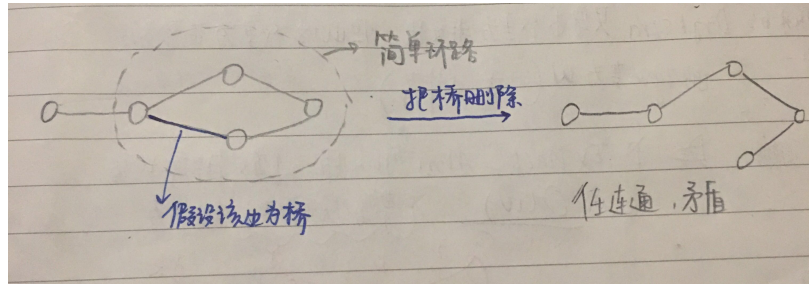 简单环路
把桥删除
假设该边为桥
仍连通,矛盾